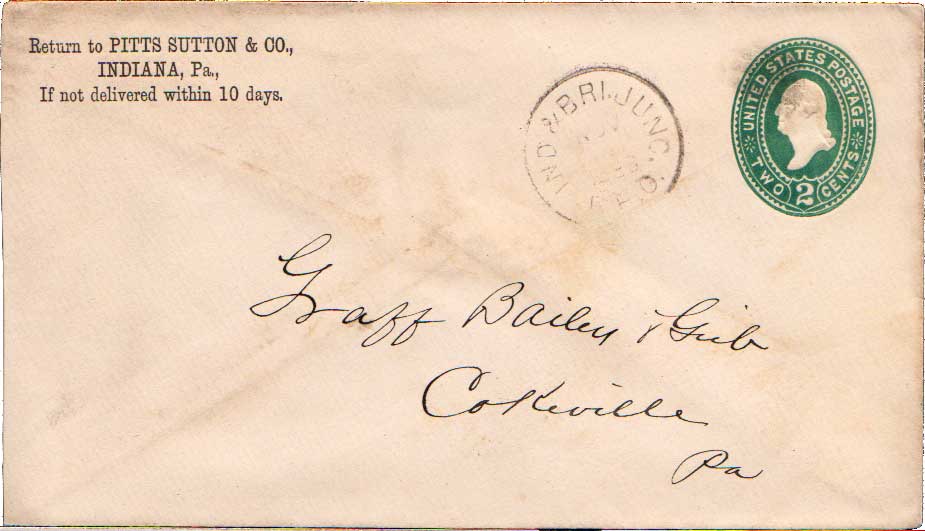 Return to PITTS SUTTON & CO.,
INDIANA, Pa.,
If not delivered within 10 days.
IND & BRI. JUNC.
UNITED STATES POSTAGE
TWO 2 CENTS
Graff Bailey &
Cokeville
Pa